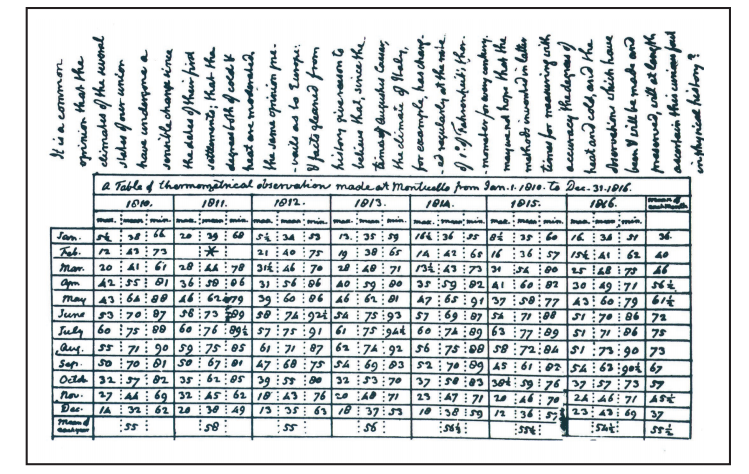 It is a common
opinion that the
climates of the several
states of our union
have undergone a
sensible change since
the dates of their first
settlements; that the
degrees both of cold &
heat are moderated.
the same opinion pre-
-vails as to Europe:
& facts gleaned from
history give reason to
believe that, since the
times of Augustus Caesar,
the climate of Italy,
for example, has chang-
-ed regularly at the rate
of 1.° of Fahrenheit's ther-
-mometer for every century.
may we not hope that the
methods invented in latter
times for measuring with
accuracy the degrees of
heat and cold, and the
observations which have
been & will be made and
preserved, will at length
ascertain this curious fact
in physical history?
a Table of thermometrical observations made at Monticello from Jan. 1. 1810. to Dec. 31. 1816.
1810. 1811. 1812. 1813. 1814. 1815. 1816. mean of each Month
max. mean min. max. mean min. max. mean min. max. mean min. max. mean min. max. mean min. max. mean min.
Jan. 5½ 38 66 20 39 68 5½ 34 53 13. 35 59 16½ 36 55 8½ 35 60 16. 34 51 36.
Feb. 12 43 73 * 21 40 75 19 38 65 14 42 65 16 36 57 15½ 41 62 40
Mar. 20 41 61 28 44 78 31½ 46 70 28 48 71 13½ 43 73 31 54 80 25 48 75 46
Apr. 42 55 81 36 58 86 31 56 86 40 59 80 35 59 82 41 60 82 30 49 71 56½
May 43 64 88 46 62 79 39 60 86 46 62 81 47 65 91 37 58 77 43 60 79 61½
June 53 70 87 58 73 89 58 74 92½ 54 75 93 57 69 87 54 71 88 51 70 86 72
July 60 75 88 60 76 89½ 57 75 91 61 75 94½ 60 74 89 63 77 89 51 71 86 75
Aug. 55 71 90 59 75 85 61 71 87 62 74 92 56 75 88 58 72 84 51 73 90 73
Sep. 50 70 81 50 67 81 47 68 75 54 69 83 52 70 89 45 61 82 54 63 90½ 67
Octob 32 57 82 35 62 85 39 55 80 32 53 70 37 58 83 38½ 59 76 37 57 73 57
Nov. 27 44 69 32 45 62 18 43 76 20 48 71 23 47 71 20 46 70 24 46 71 45½
Dec. 14 32 62 20 38 49 13 35 63 18 37 53 18 38 59 12 36 57 23 43 69 37
mean of each year 55 58 55 56 56½ 55½ 54½ 55½